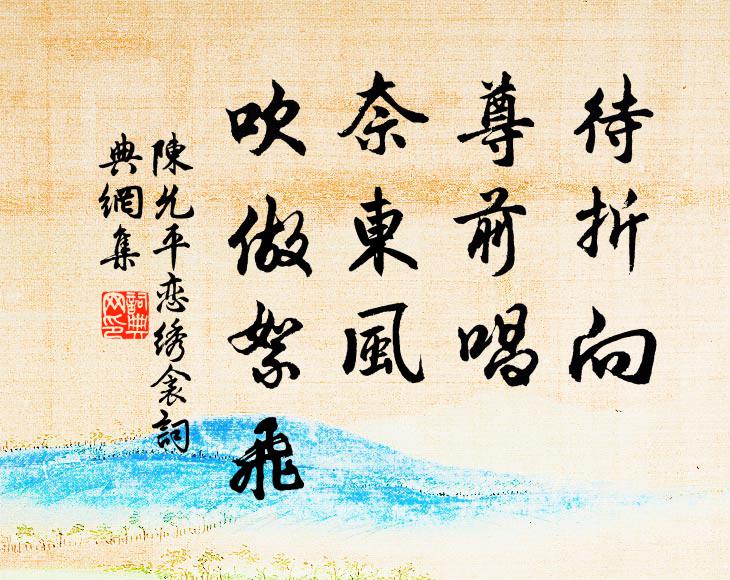 待折向
尊前唱
奈東風
吹做絮飛
陳允平恋绣衾詞
典網集
詞典网印